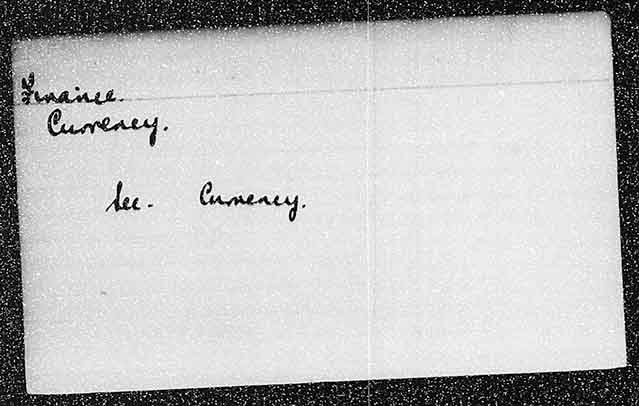 Finance.
Currency.
See. Currency.